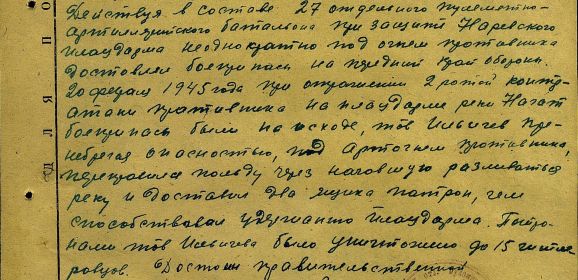 Действуя в составе 27 отдельного пулеметно-
Артиллерийского батальона при защите Наревского
плацдарма неоднократно под огнем противника
доставлял боеприпасы на передний край обороны.
20 февраля 1945 года при отражении 2 ротой контр-
атаки противника на плацдарме реки Ногат
боеприпасы были на исходе, тов Ильичев пре-
небрегая опасностью, под артогнем противника,
переправился по льду через начавшую разливаться
реку и доставил два ящика патрон, чем
способствовал удержанию плацдарма. Патро-
нами тов Ильичева было уничтожено до 15 гитле
ровцев. Достоин правительственной
Д Л Я П О